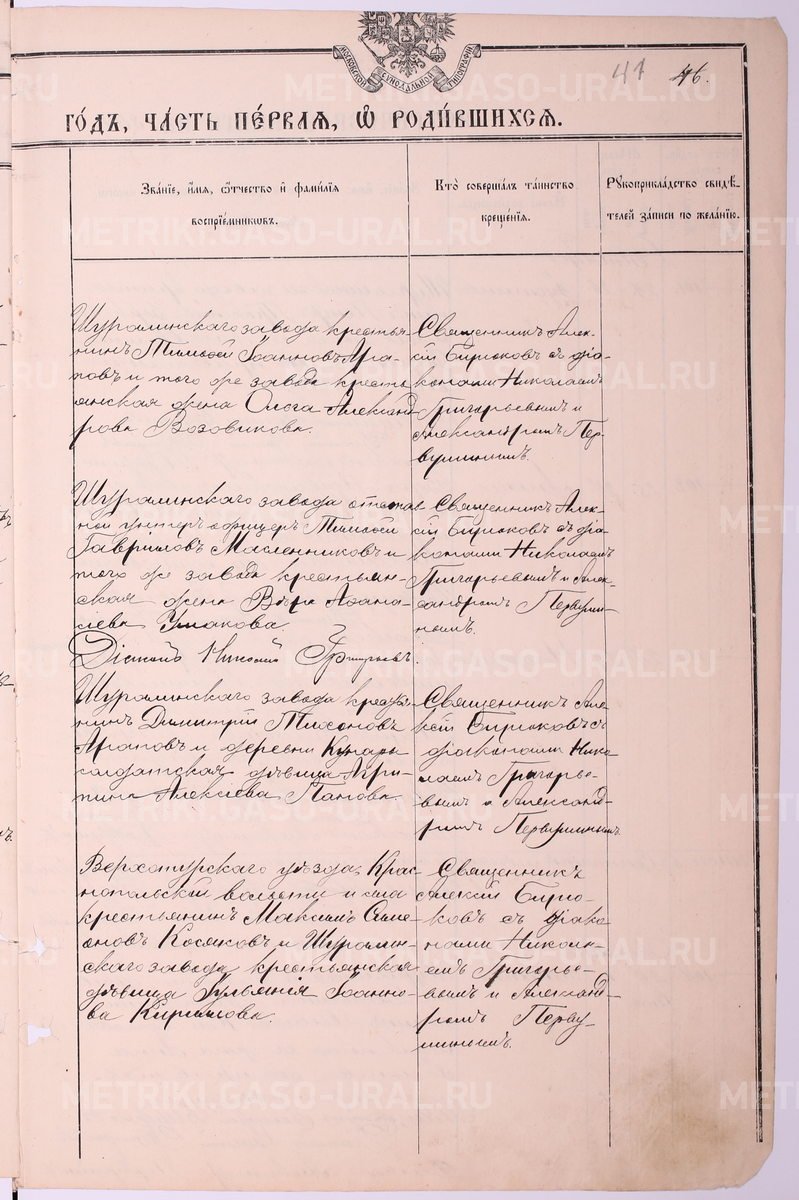 МОСКОВСКОЙ СУНОДАЛЬНОЙ ТИПОГРАФІИ
41 46.
го́дъ, ча́сть пе́рвая, ѡ҆ роди́вшихсѧ.
Зва́нїе, и҆́мѧ, ѻ҆́тчество и҆ фами́лїѧ
воспрїе́мникѡвъ.
Кто̀ соверша́лъ та́инство
креще́нїѧ.
Рꙋкоприкла́дство свидѣ́-
телей за́писи по жела́нїю.
Шуралинскаго завода крестья-
нинъ Тимофей Іоанновъ Ара-
повъ и того же завода кресть
янская жена Ольга Александ
рова Возовикова.
Священникъ Алек-
сій Бирюковъ съ діа-
конами Николаемъ
Григорьевымъ и
Александромъ Пер-
вушинымъ.
Шуралинскаго завода отстав
ной унтеръ офицеръ Тимофей
Гавріиловъ Масленниковъ и
того же завода крестьян-
ская жена Вѣра Аѳана-
сіева Ушакова.
Священникъ Алек-
сій Бирюковъ съ діа-
конами Николаемъ
Григорьевымъ и Алек-
сандромъ Первуши-
нымъ.
Діаконъ Николай Григорьевъ.
Шуралинскаго завода крестья-
нинъ Димитрій Тихоновъ
Араповъ и деревни Кунары
солдатская дѣвица Агрип-
пина Алексіева Панова.
Священникъ Але
ксій Бирюковъ съ
діаконами Нико
лаемъ Григорье-
вымъ и Александ-
ромъ Первушинымъ.
Верхотурскаго уѣзда, Крас-
нопольской волости и села
крестьянинъ Максимъ Симе
оновъ Косяковъ и Шуралин-
скаго завода крестьянская
дѣвица Іульянія Іоанно-
ва Кирилова.
Священникъ
Алексій Бирю-
ковъ съ діако
нами Никола-
емъ Григорье-
вымъ и Александ-
ромъ Перву-
шинымъ.
METRIKI.GASO-URAL.RU